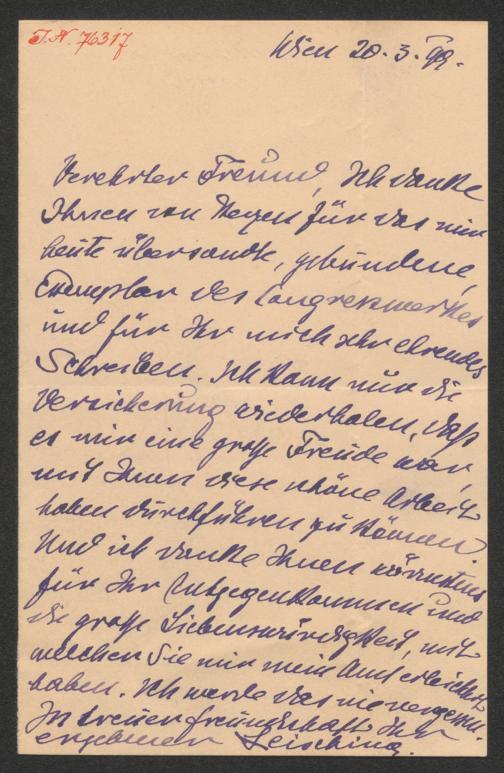 J.N. 76317
Wien 20.3.99.
Verehrter Freund, Ich danke
Ihnen von Herzen für das mir
heute übersandte, gebundene,
Exemplar des Congresswerkes
und für Ihr mich sehr ehrendes
Schreiben. Ich kann nur die
Versicherung wiederholen, daß
es mir eine große Freude war,
mit Ihnen diese schöne Arbeit
haben durchführen zu können
und ich danke Ihnen
für Ihr Entgegenkommen und
die große Liebenswürdigkeit, mit
welcher Sie mir mein Amt erleichtert
haben. Ich werde das nie vergessen.
In treuer Freundschaft Ihr
ergebener Leisching.